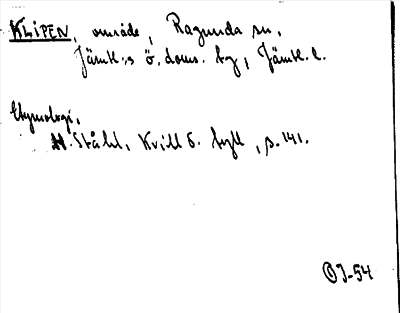 KLIPEN, område, Ragunda sn,
Jämtl:s ö. doms. tg, Jämtl. l.
Etymologi,
H. Ståhl, Kvill o. tyll, s. 141.
OJ-54